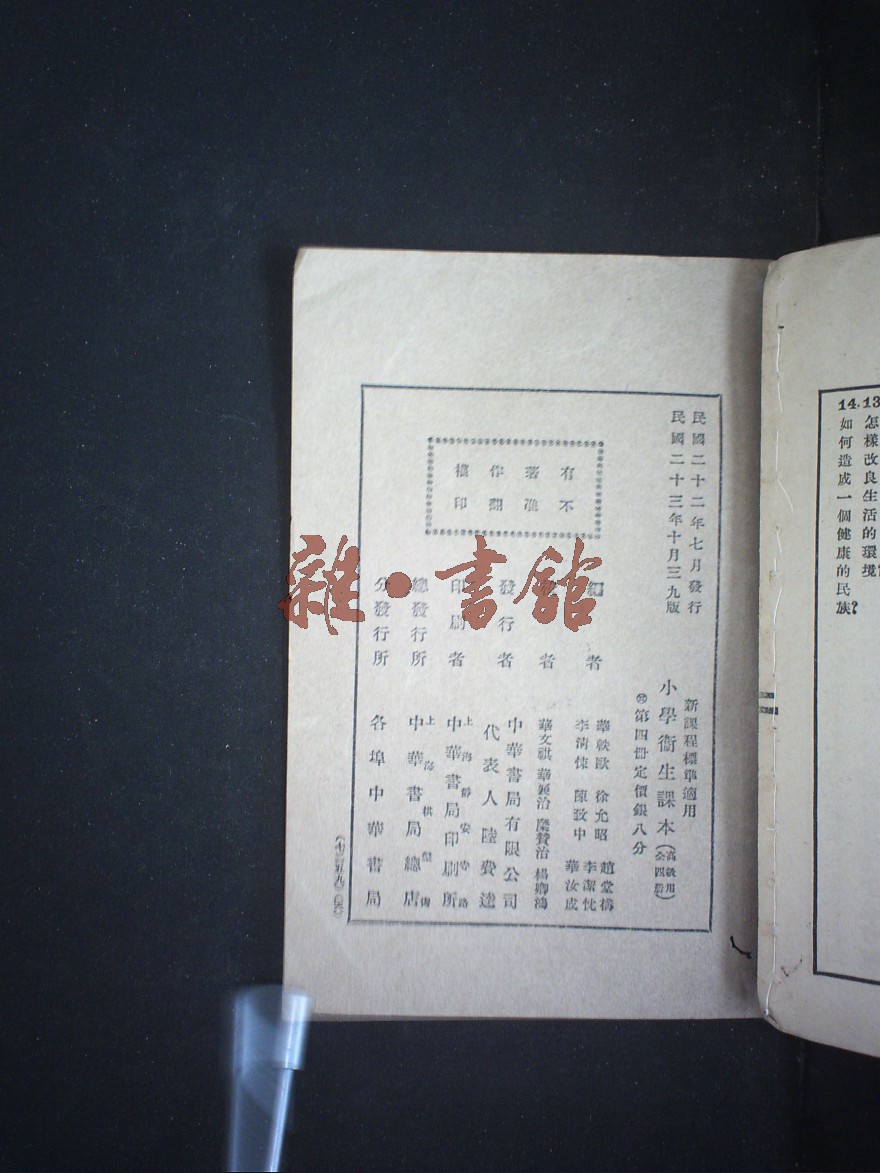 13.怎樣改良生活的環境
14.如何造成一個健康的民族?
民國二十二年七月發行
民國二十三年十月三九版
新課程標準適用
小學衞生課本(高級用 全四册)
第四册定價銀八分
有著作權
不准翻印
編者
華軼歐 徐允昭 趙堂構
李清悚 陳致中 李潔忱 華汝成
者
華文祺 華襄治 糜贊治 楊卿鴻
發行者
中華書局有限公司
代表人 陸費逵
印刷者
上海靜安寺路
中華書局印刷所
總發行所
上海棋盤街
中華書局總店
分發行所
各埠中華書局
雜·書館